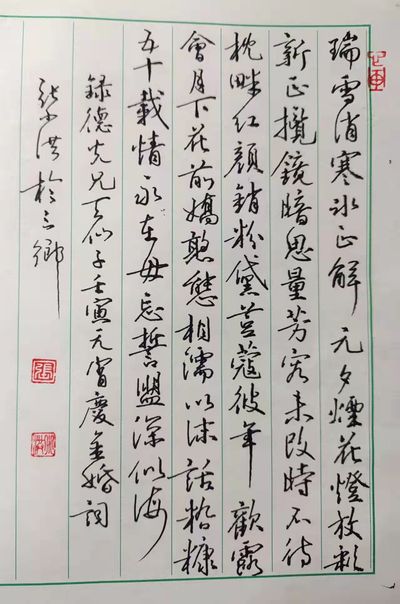 瑞雪消寒冰正解 元夕煙花燈放彩
新正攬鏡暗思量芳容未改時不待
枕畔紅顏銷粉黛荳蔻彼年 歡露
會月下花前嬌憨態相濡以沫話糟糠
五十載情永在毋忘誓盟深似海
録德先兄天仙子壬寅元宵慶金婚詞
張洪於三鄉
張